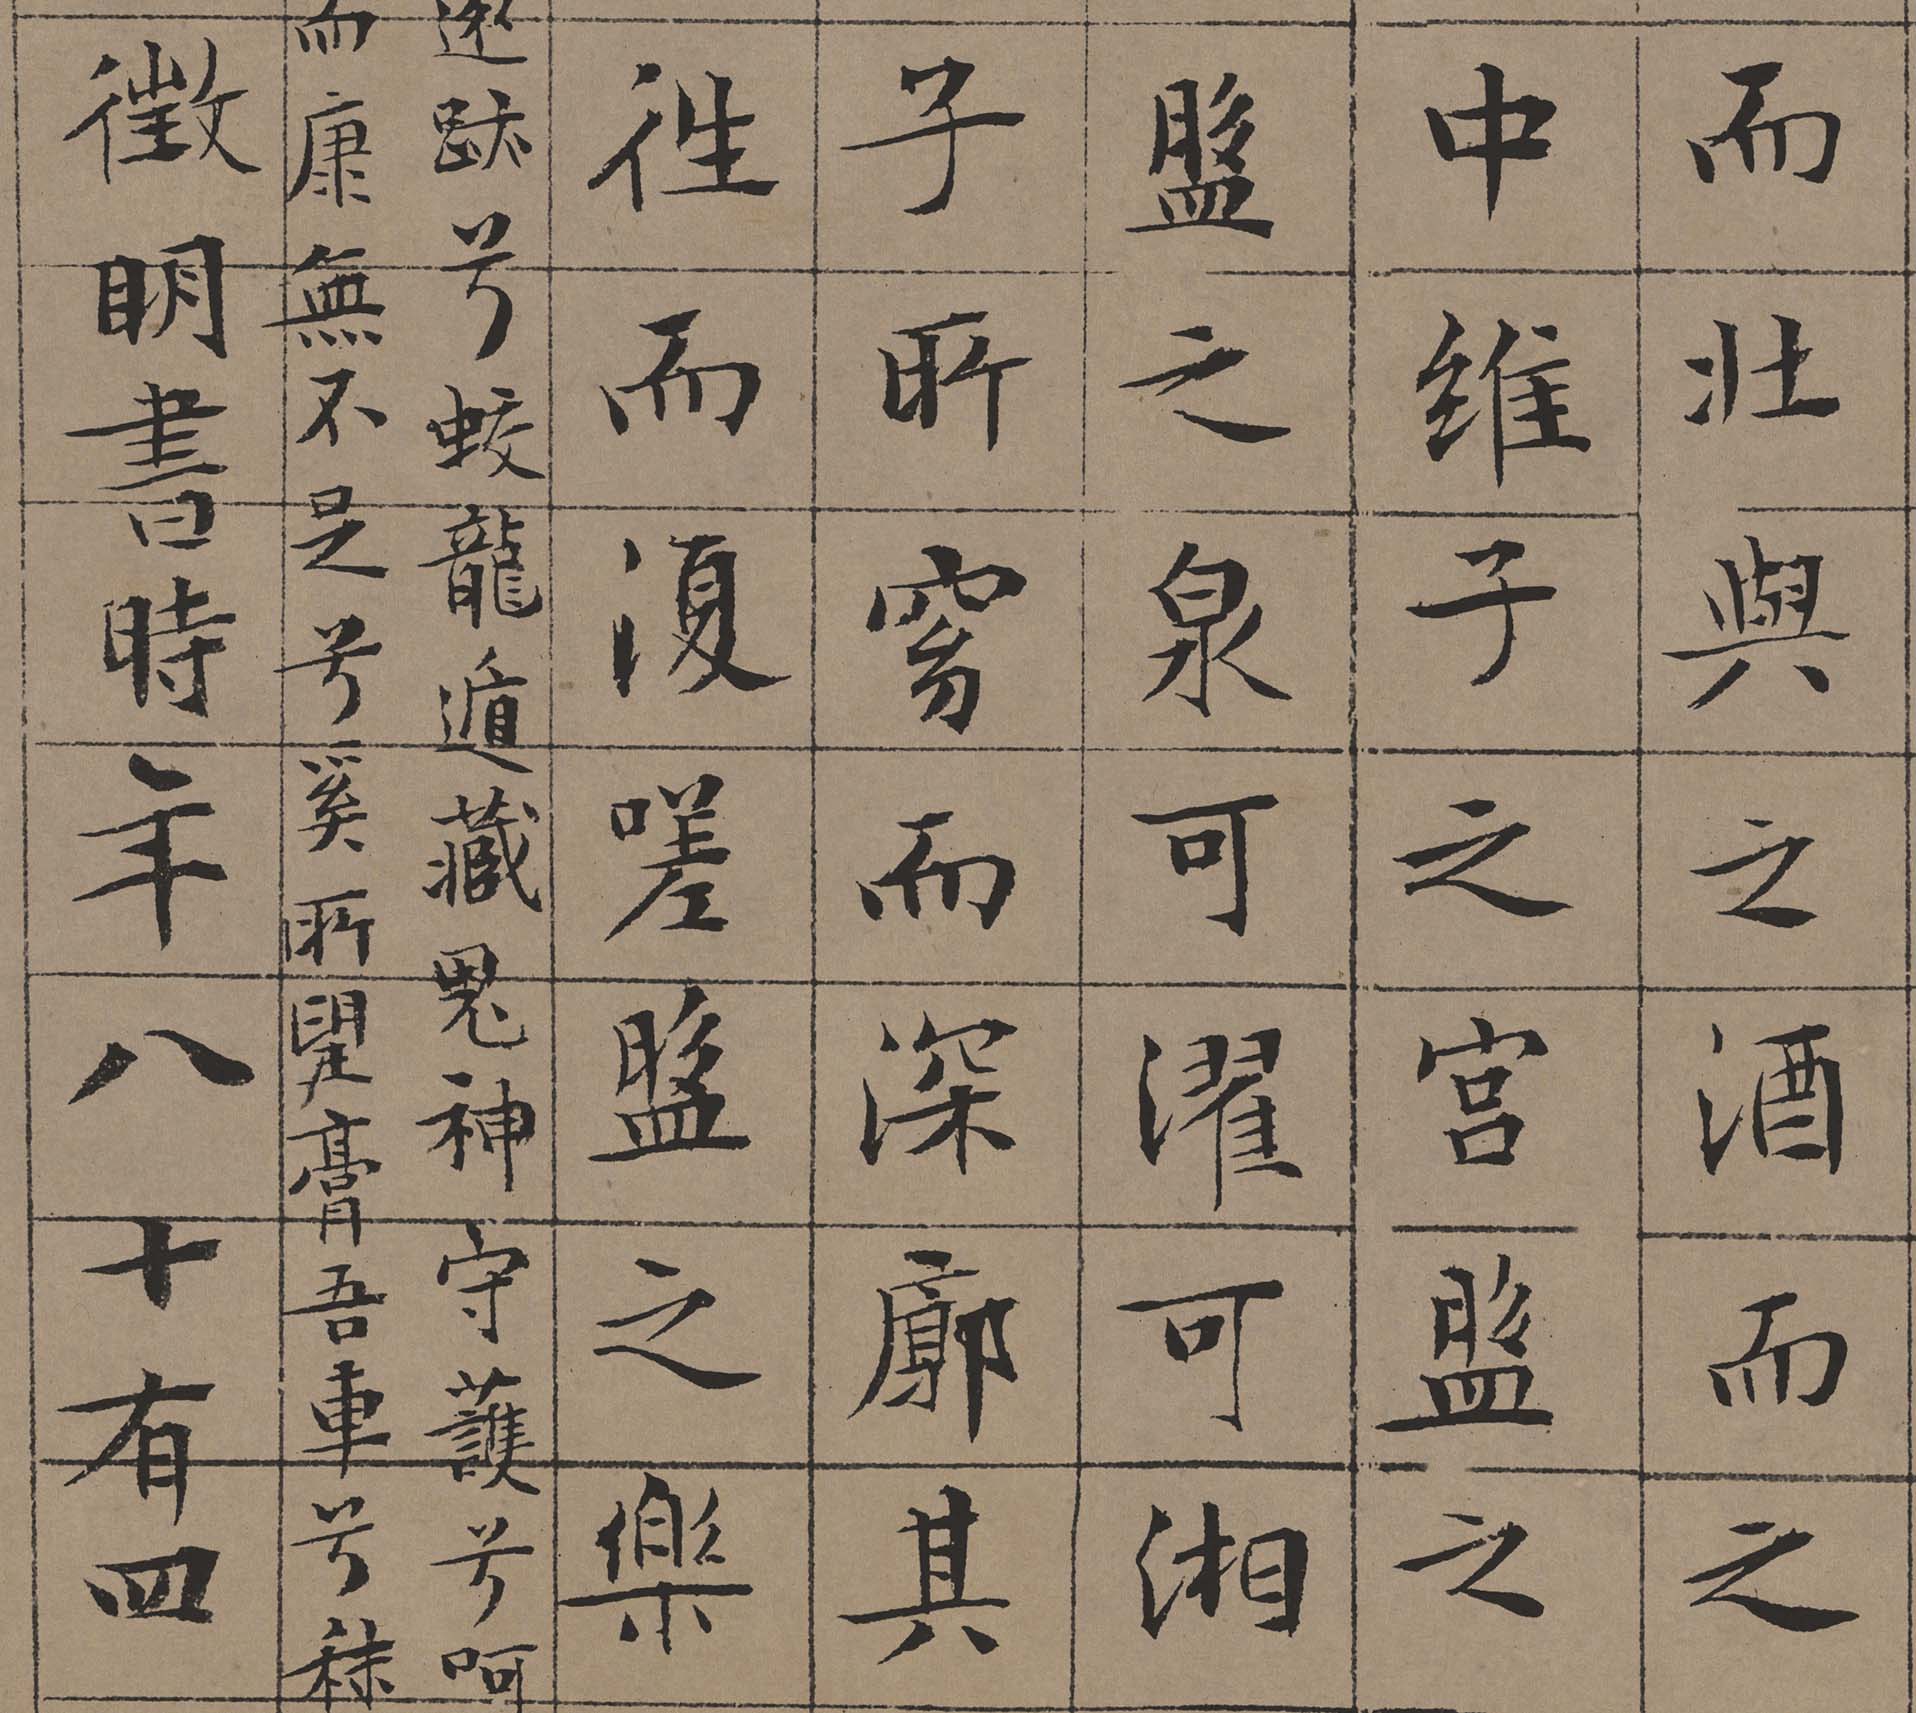 而壯與之酒而之
中維子之宮盤之
盤之泉可濯可湘
子所窈而深廓其
徃而復嗟盤之樂
跡兮蛟龍遁藏鬼神守護兮呵
而康無不足兮奚所望膏吾車兮秣
徵明書時年八十有四